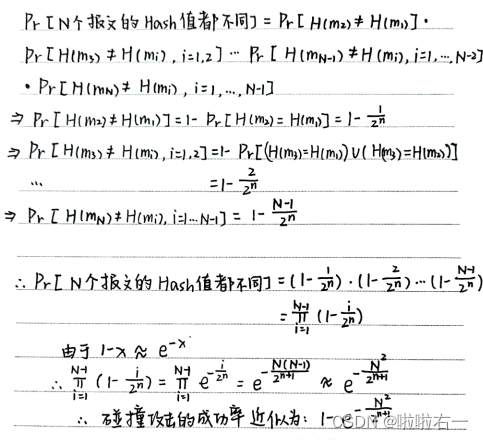 Pr [ N个报文的 Hash值都不同 ] = Pr [ H(m₂) ≠ H(m₁) ] ·
Pr [ H(m₃) ≠ H(mi) , i=1,2 ] ··· Pr [ H(m_{N-1}) ≠ H(mi), i=1, ..., N-2 ]
· Pr [ H(m_N) ≠ H(mi) , i=1, ..., N-1 ]
⇒ Pr [ H(m₂) ≠ H(m₁) ] = 1 - Pr [ H(m₂) = H(m₁) ] = 1 - 1/2^n
⇒ Pr [ H(m₃) ≠ H(mi), i=1,2 ] = 1 - Pr [ (H(m₃)=H(m₁)) ∪ ( H(m₃)=H(m₂)) ]
... = 1 - 2/2^n
⇒ Pr [ H(m_N) ≠ H(mi), i=1...N-1 ] = 1 - (N-1)/2^n
∴ Pr [ N个报文的 Hash值都不同 ] = (1 - 1/2^n) · (1 - 2/2^n) ··· (1 - (N-1)/2^n)
= ∏_{i=1}^{N-1} (1 - i/2^n)
由于 1-x ≈ e^{-x}
∴ ∏_{i=1}^{N-1} (1 - i/2^n) = ∏_{i=1}^{N-1} e^{-i/2^n} = e^{-N(N-1)/2^{n+1}} ≈ e^{-N²/2^{n+1}}
∴ 碰撞攻击的成功率近似为: 1 - e^{-N²/2^{n+1}}
CSDN @啦啦右一